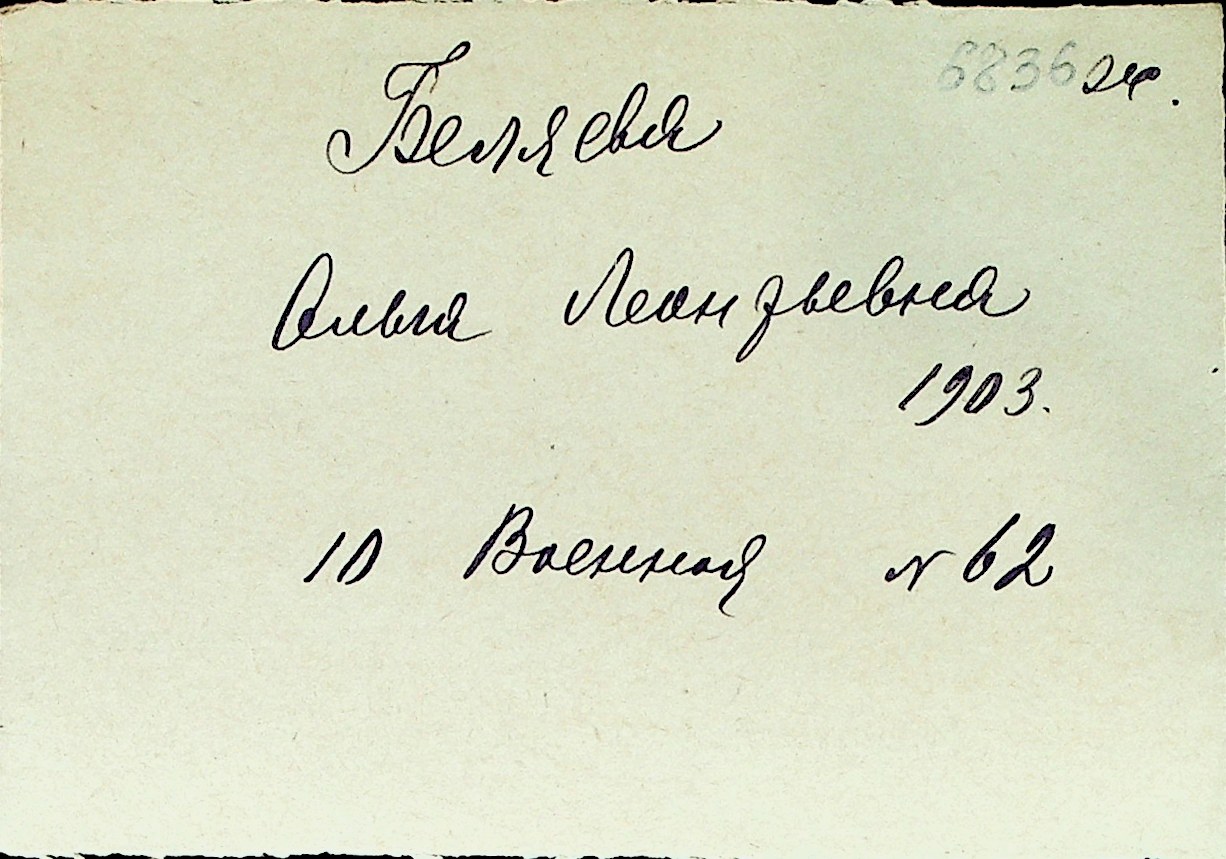 6836 эк.
Беляева
Ольга Леонтьевна
1903.
10 Военная N 62